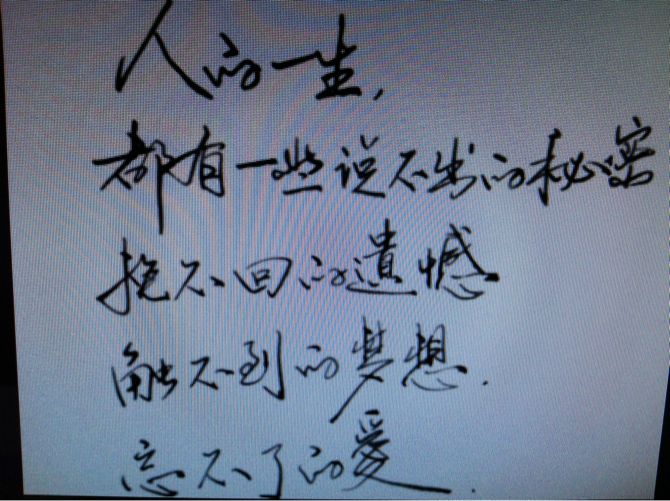 人的一生,
都有一些说不出的秘密
挽不回的遗憾
触不到的梦想.
忘不了的爱.